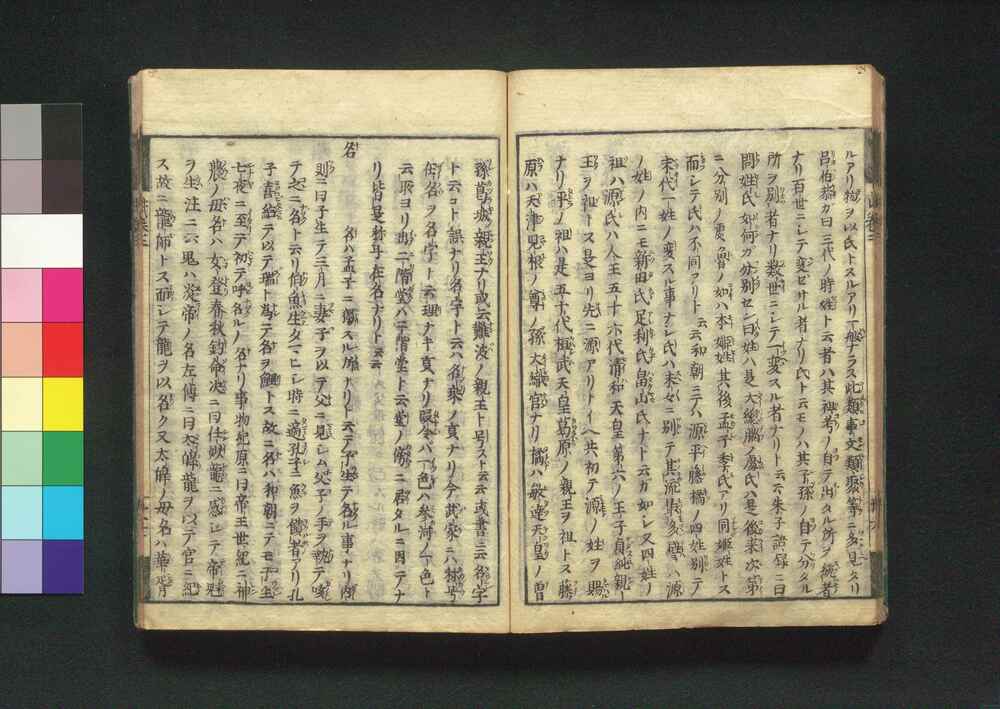 ルアリ物ヲ以氏トスルアリ一般ナラス此類事文類聚等ニ多見タリ
呂伯恭カ曰三代ノ時姓ト云者ハ其祖考ノ自テ出タル所ヲ統者
ナリ百世ニシテ変セサル者ナリ氏ト云モノハ其子孫ノ自テ分タル
所ヲ別者ナリ数世ニシテ一変スル者ナリト云云朱子語録ニ曰
問姓氏如何カ分別セン曰姓ハ是大総脳ノ処氏ハ是後来次第
ニ分別ノ処魯ノ如ハ本姫姓其後孟子季氏アリ同姫姓トス
而シテ氏ハ不同コリト云云和朝ニテハ源平藤橘ノ四姓別テ
末代一姓ノ変スル事ナシ氏ハ末々ニ別テ其流甚多シ譬ハ源
ノ姓ノ内ニモ新田氏足利氏畠山氏ナト云カ如シ又四姓ノ
祖ハ源氏ハ人王五十六代清和天皇第六ノ王子貞純親
王ヲ祖トス是ヨリ先ニ源アリトイヘ共初テ源ノ姓ヲ賜
ナリ平ノ祖ハ是五十代桓武天皇葛原ノ親王ヲ祖トス藤
原ハ天津児根ノ尊ノ孫大織官ナリ橘ハ敏達天皇ノ曽
孫葛城親王ナリ或云難波ノ親王ト号スト云云或書ニ云名字
ト云コト誤ナリ名字ト云ハ名乗ノ夏ナリ今武家ニハ称号
在名ヲ名字ト云理ナキ夏ナリ假令バ一色ハ参河ノ一色ト
云所ヨリ出二階堂ハ二階堂ト云堂ノ傍ニ居タルニ因テナ
リ皆是称号在名ナリト云云
名 名ハ孟子ニ獨スル所ナリト云云子生テ名ル事ナリ内
則ニ曰子生テ三月ニ妻子ヲ以テ父ニ見シム父子ノ手ヲ執テ咳
テ之ニ名ト云リ伯魚生タマヒシ時ニ適孔子ニ魚ヲ饋者アリ孔
子喜給テ以テ瑞ト為テ名ヲ鯉トス故ニ名ハ和朝ニテモ子生
七夜ニ至テ初テ呼名ルノ名ナリ事物紀原ニ曰帝王世紀ニ神
農ノ母名ハ女登春秋鈎命决ニ曰任姒龍ニ感シテ帝魁
ヲ生注ニ云魁ハ炎帝ノ名左傳ニ曰太皞龍ヲ以テ官ニ紀
ス故ニ龍師トス而シテ龍ヲ以名ク又太皞ノ母名ハ華胥